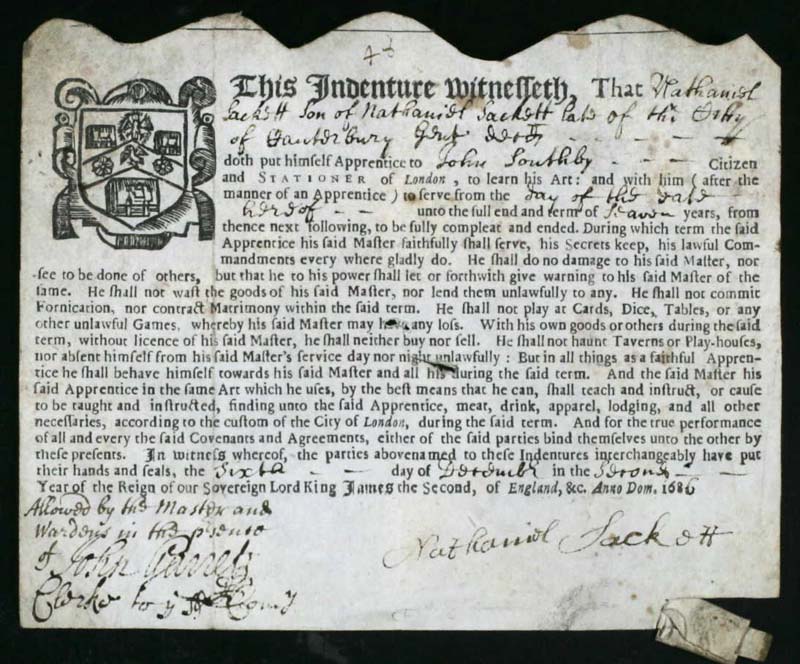 48
This Indenture witnesseth, That Nathaniel
Sackett Son of Nathaniel Sackett late of the Citty
of Canterbury Gent decd - - - -
doth put himself Apprentice to John Southby - - - Citizen
and STATIONER of London, to learn his Art: and with him (after the
manner of an Apprentice) to serve from the day of the date
hereof - - unto the full end and term of Seaven years, from
thence next following, to be fully compleat and ended. During which term the said
Apprentice his said Master faithfully shall serve, his Secrets keep, his lawful Com-
mandments every where gladly do. He shall do no damage to his said Master, nor
see to be done of others, but that he to his power shall let or forthwith give warning to his said Master of the
same. He shall not wast the goods of his said Master, nor lend them unlawfully to any. He shall not commit
Fornication, nor contract Matrimony within the said term. He shall not play at Cards, Dice, Tables, or any
other unlawful Games, whereby his said Master may have any loss. With his own goods or others during the said
term, without licence of his said Master, he shall neither buy nor sell. He shall not haunt Taverns or Play-houses,
nor absent himself from his said Master's service day nor night unlawfully: But in all things as a faithful Appren-
tice he shall behave himself towards his said Master and all his during the said term. And the said Master his
said Apprentice in the same Art which he uses, by the best means that he can, shall teach and instruct, or cause
to be taught and instructed, finding unto the said Apprentice, meat, drink, apparel, lodging, and all other
necessaries, according to the custom of the City of London, during the said term. And for the true performance
of all and every the said Covenants and Agreements, either of the said parties bind themselves unto the other by
these presents. In witness whereof, the parties abovenamed to these Indentures interchangeably have put
their hands and seals, the Sixth - - day of Decembr in the Second - -
Year of the Reign of our Sovereign Lord King James the Second, of England, &c. Anno Dom. 1686
Allowed by the Master and
Wardens in the presence
of John Garrett
Clerke to ye
Nathaniel Sackett